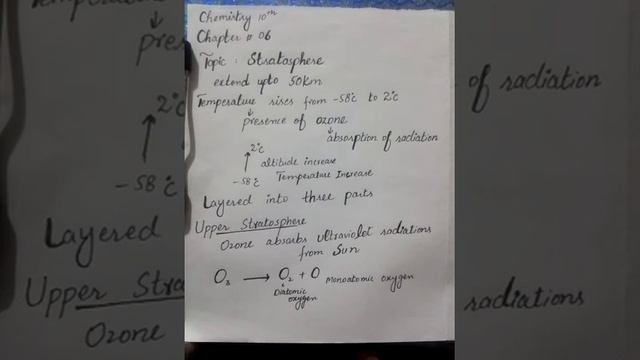 Chemistry 10th
Chapter # 06
Topic : Stratosphere
extend upto 50km
Temperature rises from -58°c to 2°c
presence of ozone
absorption of radiation
2°c
altitude increase
-58°c Temperature Increase
Layered into three parts
Upper Stratosphere
Ozone absorbs ultraviolet radiations
from Sun
O3 → O2 + O Monoatomic oxygen
Diatomic
oxygen